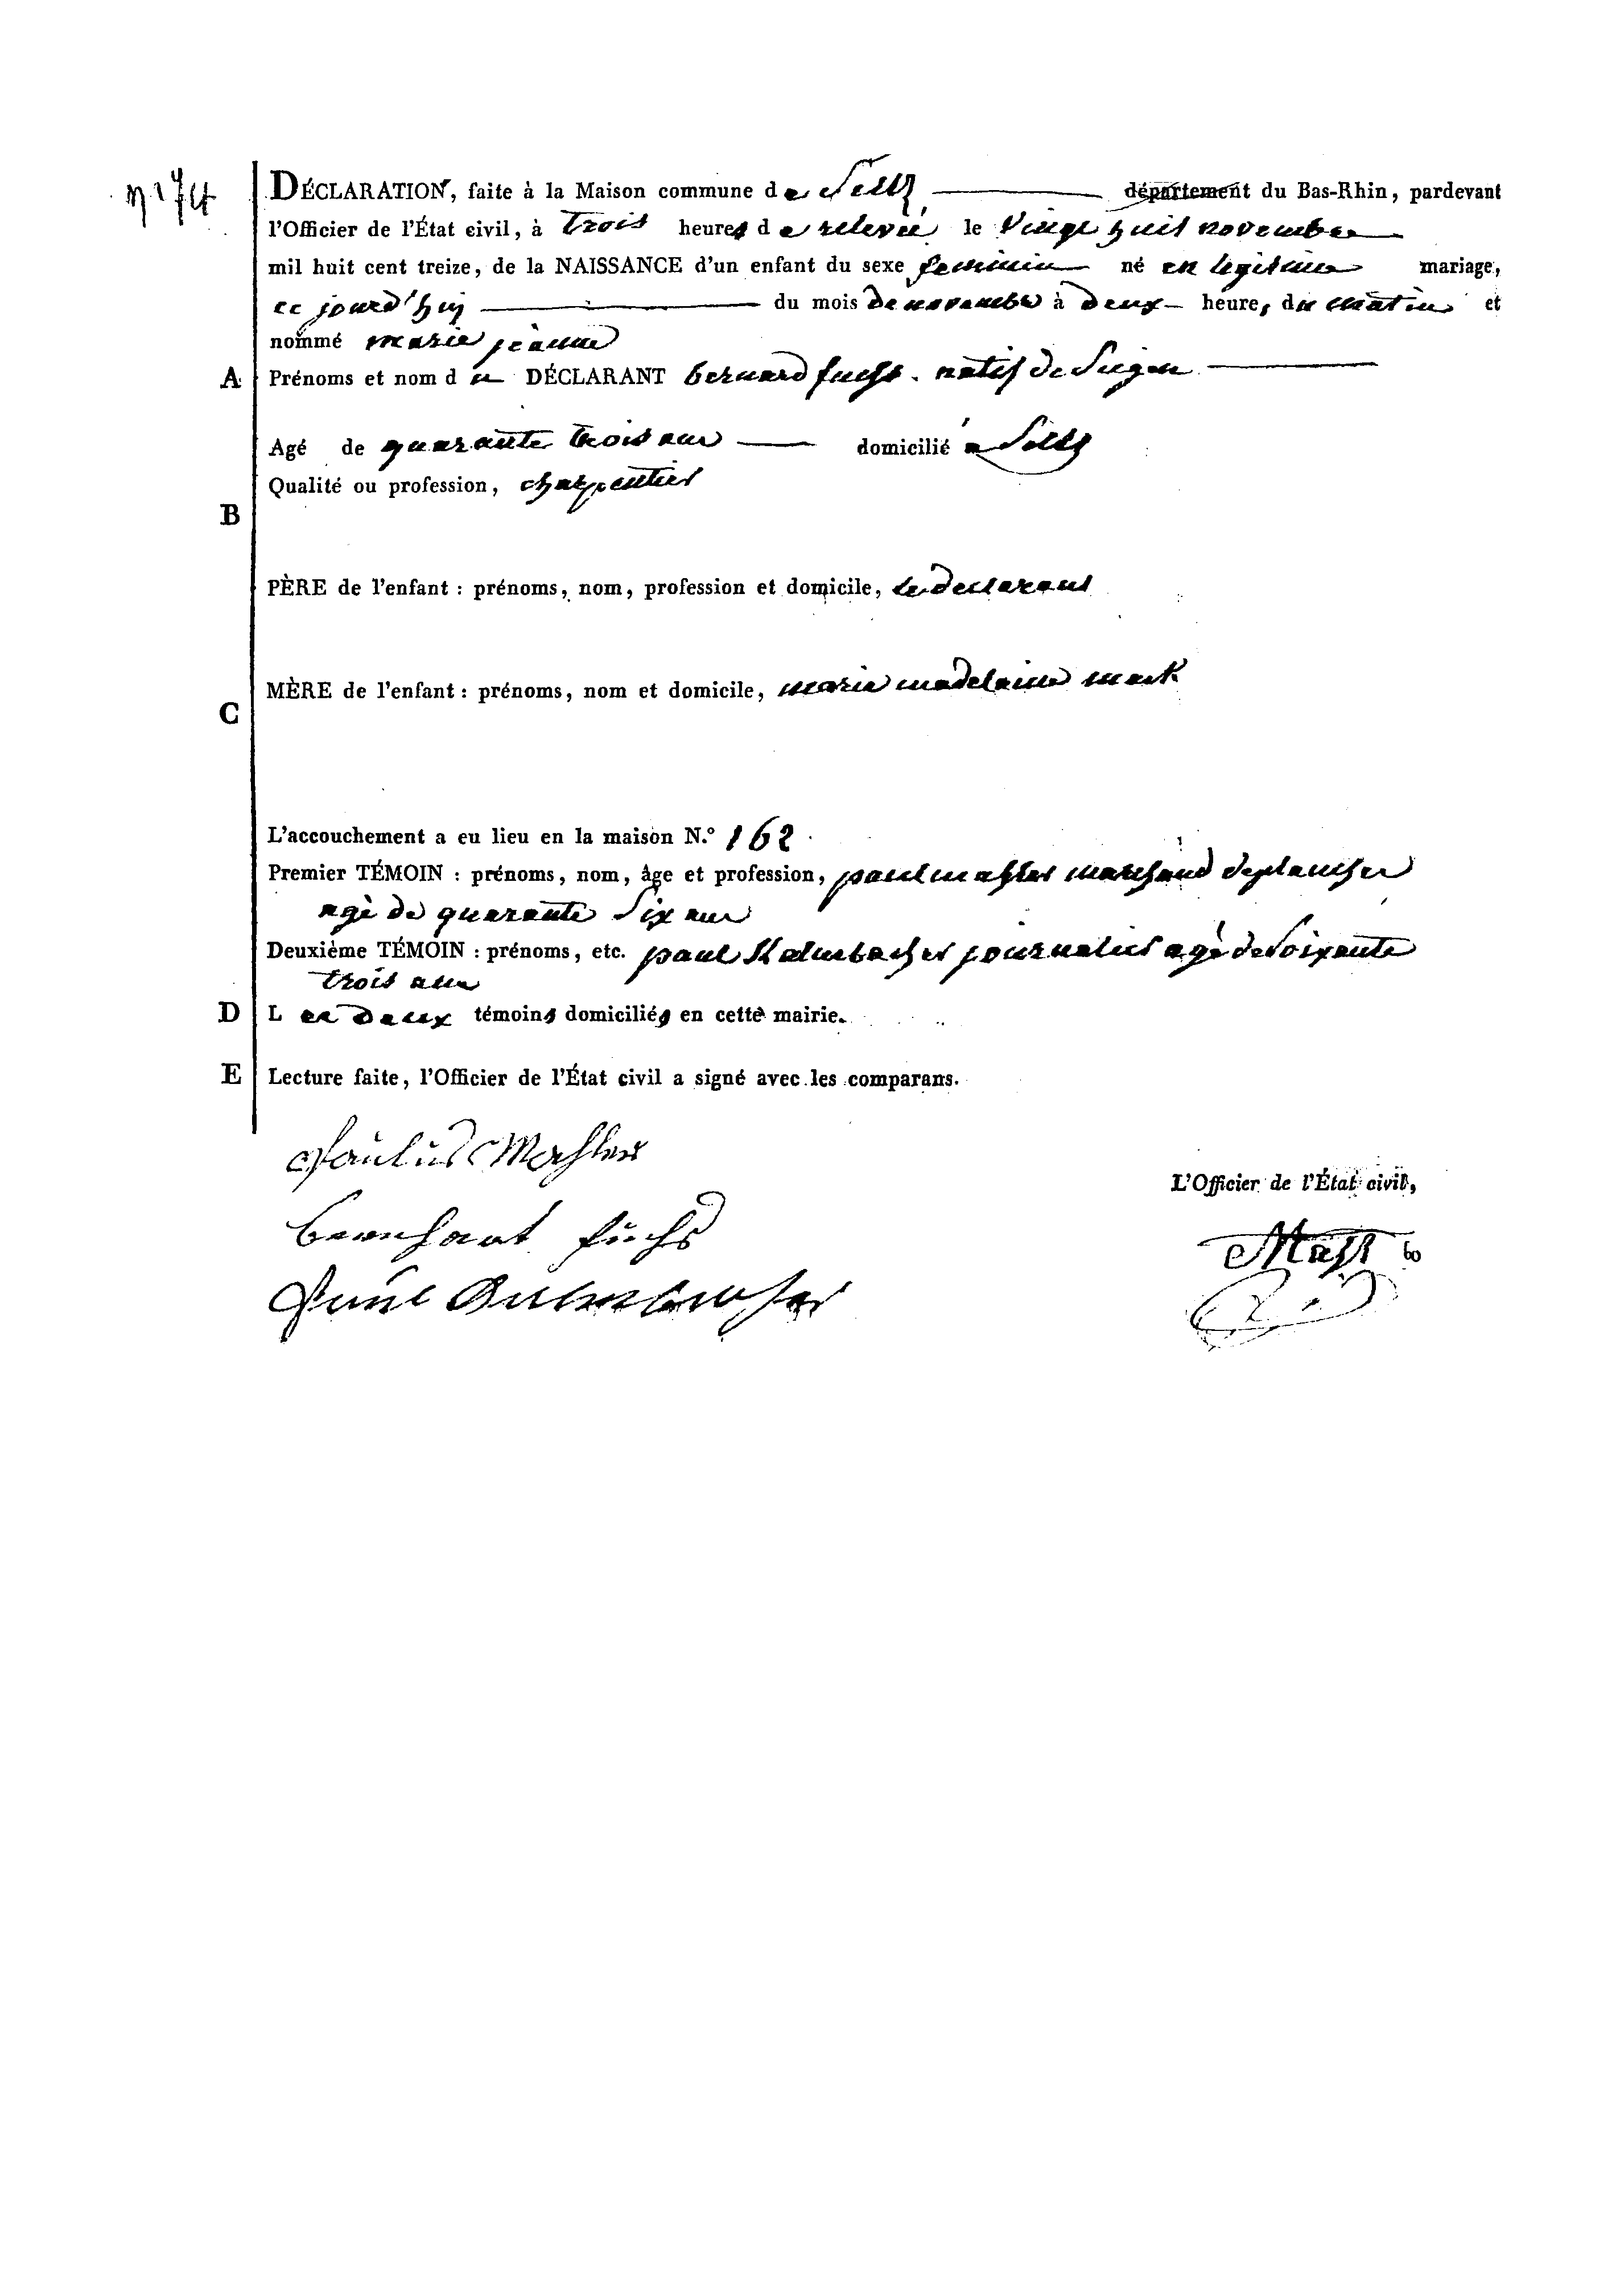 n° 74
DÉCLARATION, faite à la Maison commune de Seltz département du Bas-Rhin, pardevant
l'Officier de l'État civil, à trois heures de relevée le vingt huit novembre
mil huit cent treize, de la NAISSANCE d'un enfant du sexe feminin né en legitime mariage,
ce jourd'huj du mois de novembre à deux heure, du matin et
nommé marie jeanne
A Prénoms et nom du DÉCLARANT bernard fuchs. natif de Siegen
Agé de quarante trois ans domicilié a Seltz
Qualité ou profession, charpentier
B
PÈRE de l'enfant : prénoms, nom, profession et domicile, le declarant
MÈRE de l'enfant : prénoms, nom et domicile, marie madelaine mark
C
L'accouchement a eu lieu en la maison N.° 162
Premier TÉMOIN : prénoms, nom, âge et profession, paul mahler marchand de planches
agè de quarante six ans
Deuxième TÉMOIN : prénoms, etc. paul Kalmbacher journalier agè de soixante
trois ans
D Les deux témoins domiciliés en cette mairie.
E Lecture faite, l'Officier de l'État civil a signé avec les comparans.
Paulus Mahler
L'Officier de l'État civil,
bernhart fuchs